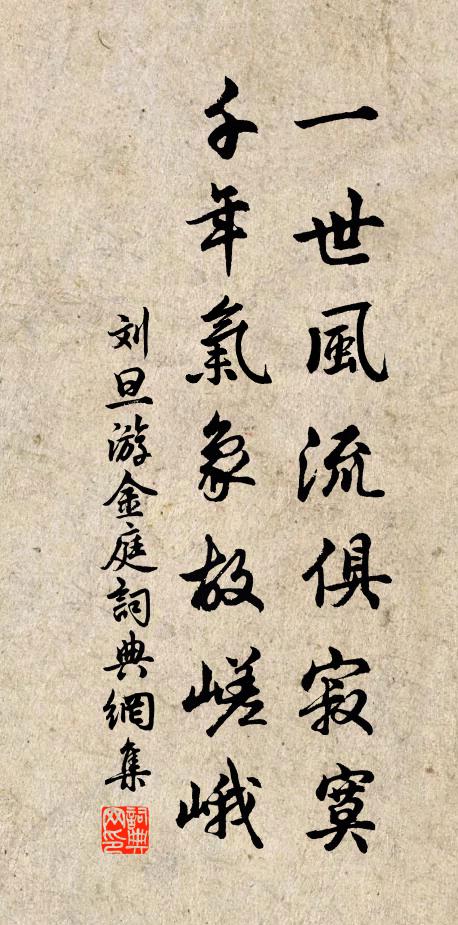 一世風流俱寂寞
千年氣象故嵯峨
刘旦游金庭詞典網集
詞典网印